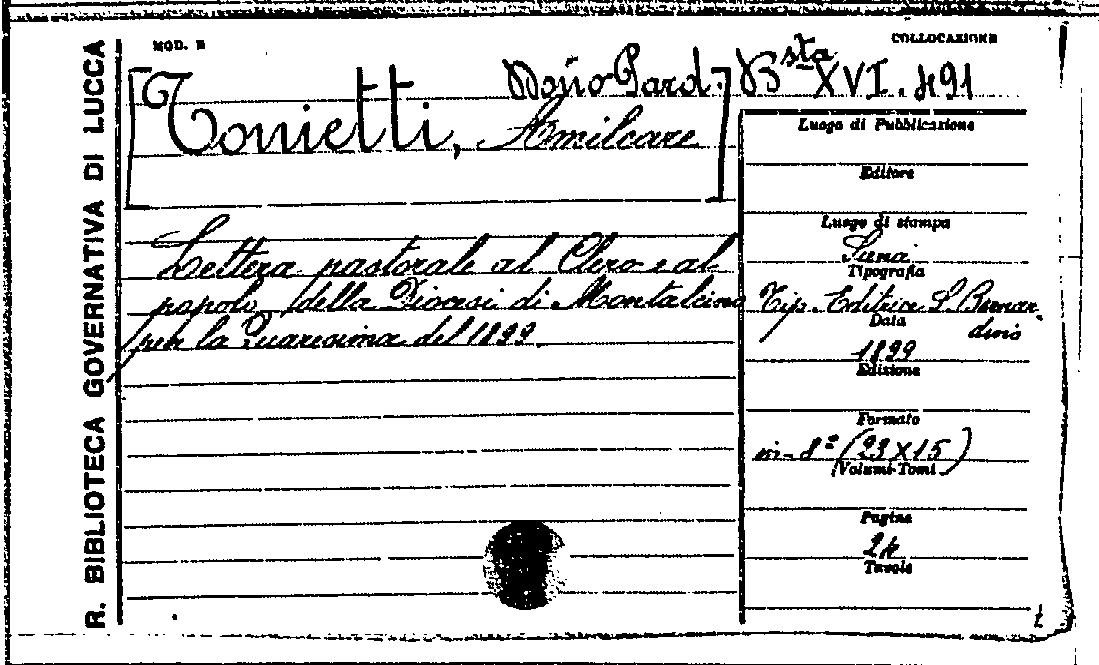 R. BIBLIOTECA GOVERNATIVA DI LUCCA
MOD. B
COLLOCAZIONE
Bsta XVI. 491
[Tonietti, Amilcare]
Lettera pastorale al Clero e al
popolo della Diocesi di Montalcino
per la Quaresima del 1899.
Luogo di Pubblicazione
Editore
Luogo di stampa
Siena
Tipografia
Tip. Editrice S. Bernar-
dino
Data
1899
Edizione
Formato
in-8º (23X15)
Volumi-Tomi
Pagine
24
Tavole